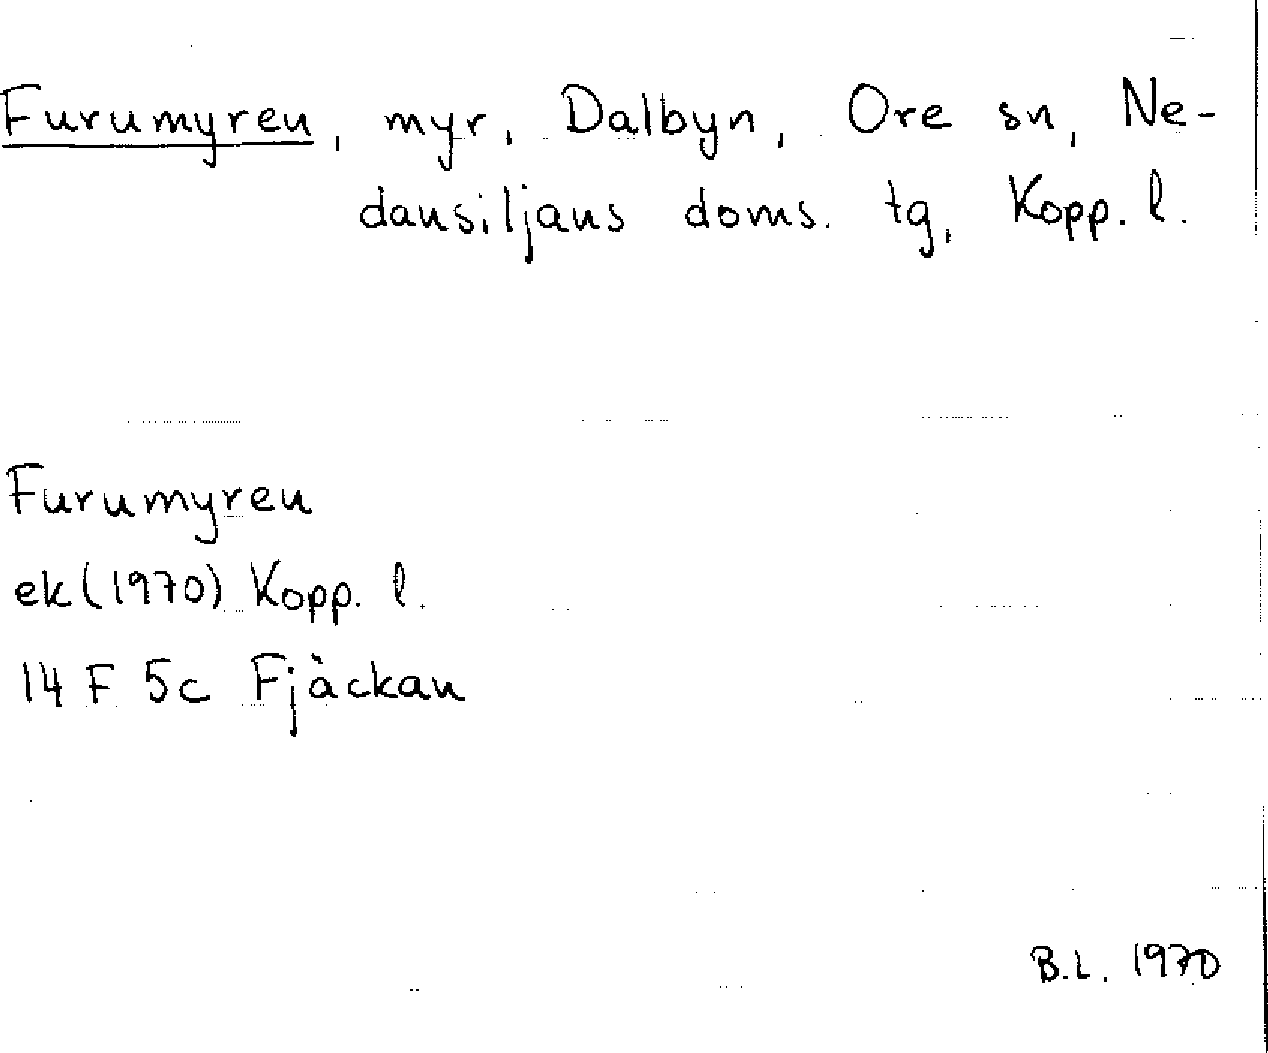 Furumyren, myr, Dalbyn, Ore sn, Ne-
dansiljans doms. tg, Kopp. l.
Furumyren
ek (1970) Kopp. l.
14 F 5c Fjäckan
B.L. 1970